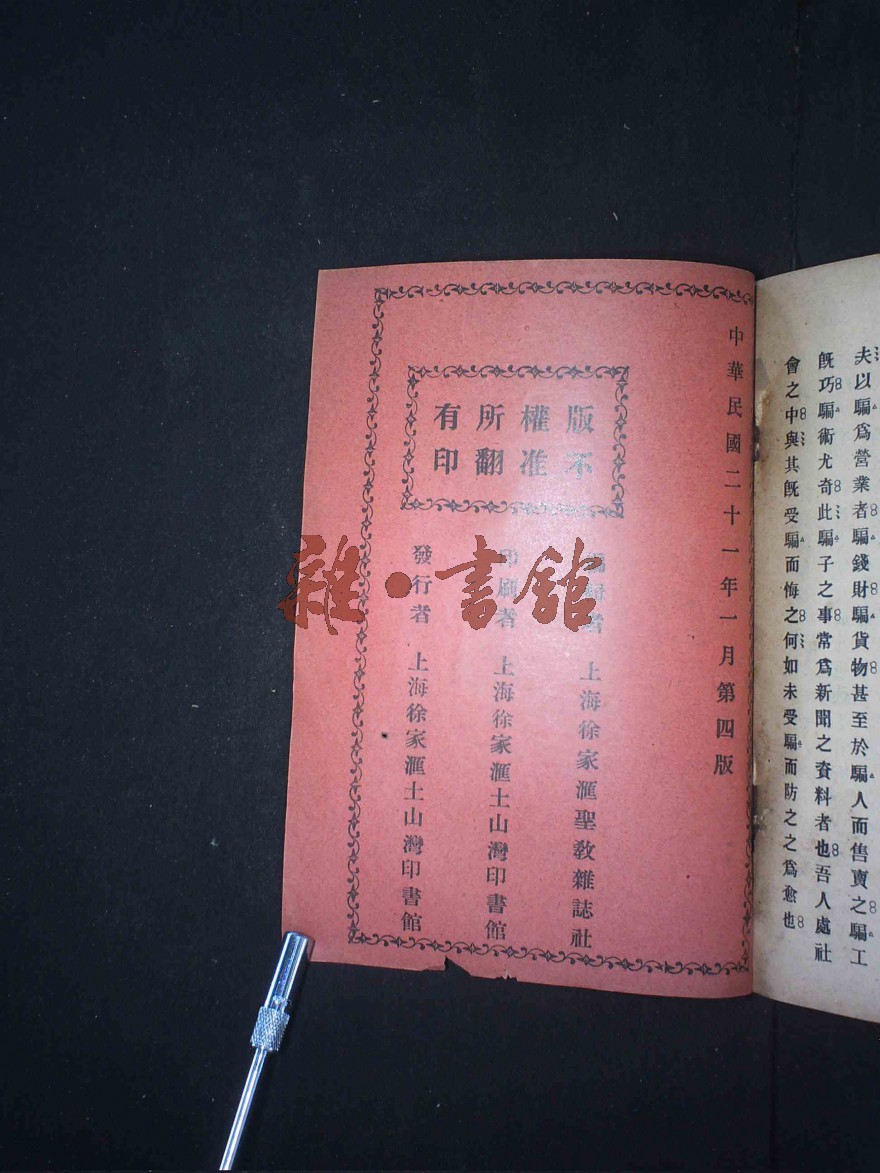 夫以騙爲營業者騙錢財騙貨物甚至於騙人而售賣之騙工
旣巧騙術尤奇此騙子之事常爲新聞之資料者也吾人處社
會之中與其旣受騙而悔之何如未受騙而防之之爲愈也
中華民國二十一年一月第四版
版權所有
不准翻印
編輯者 上海徐家滙聖敎雜誌社
印刷者 上海徐家滙土山灣印書館
發行者 上海徐家滙土山灣印書館
雜·書館